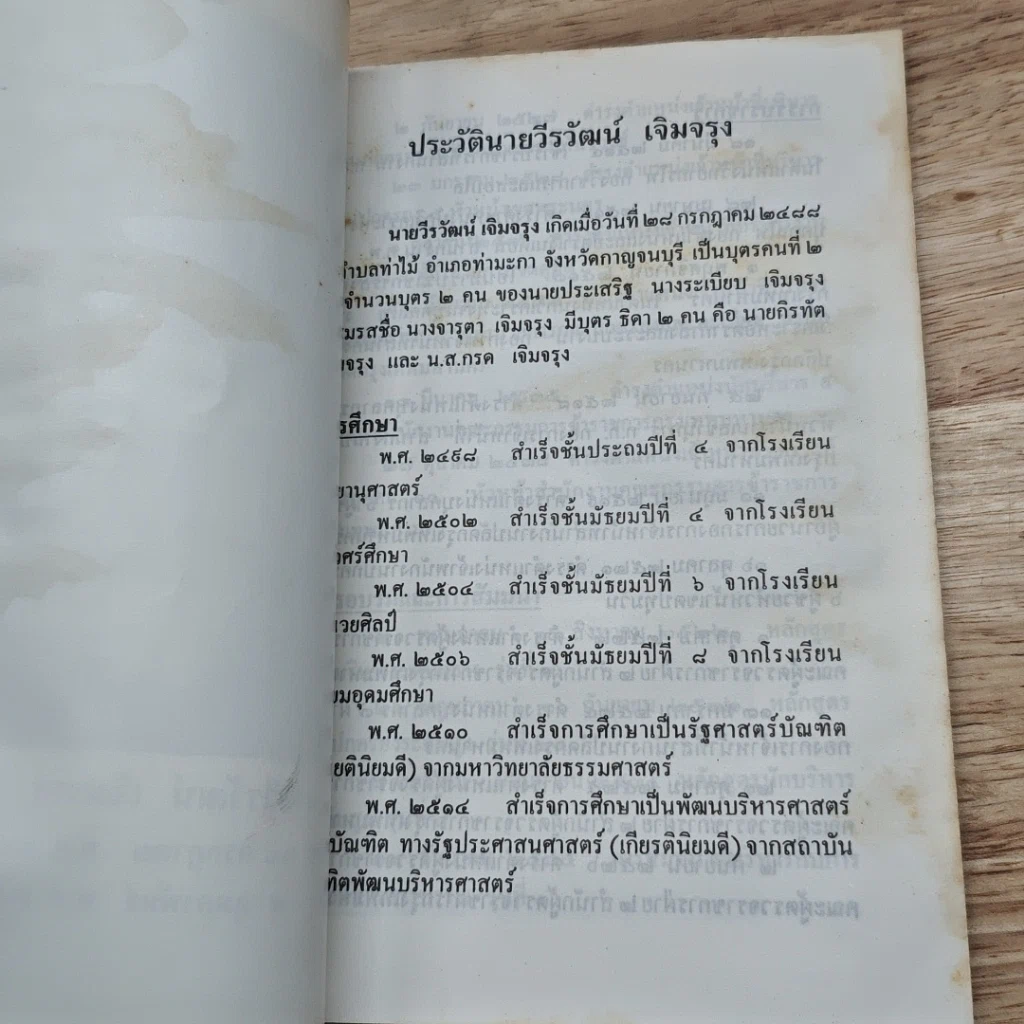 ประวัตินายวีรวัฒน์ เจิมจรุง
นายวีรวัฒน์ เจิมจรุง เกิดเมื่อวันที่ ๒๘ กรกฎาคม ๒๔๘๘
ตำบลท่าไม้ อำเภอท่ามะกา จังหวัดกาญจนบุรี เป็นบุตรคนที่ ๒
จำนวนบุตร ๒ คน ของนายประเสริฐ นางระเบียบ เจิมจรุง
มรสชื่อ นางจารุตา เจิมจรุง มีบุตร ธิดา ๒ คน คือ นายกิรทัต
จรุง และ น.ส.กรด เจิมจรุง
รศึกษา
พ.ศ. ๒๔๙๘ สำเร็จชั้นประถมปีที่ ๔ จากโรงเรียน
ยานุศาสตร์
พ.ศ. ๒๕๐๒ สำเร็จชั้นมัธยมปีที่ ๔ จากโรงเรียน
ศร์ศึกษา
พ.ศ. ๒๕๐๔ สำเร็จชั้นมัธยมปีที่ ๖ จากโรงเรียน
วยศิลป์
พ.ศ. ๒๕๐๖ สำเร็จชั้นมัธยมปีที่ ๘ จากโรงเรียน
ยมอุดมศึกษา
พ.ศ. ๒๕๑๐ สำเร็จการศึกษาเป็นรัฐศาสตร์บัณฑิต
ยตินิยมดี) จากมหาวิทยาลัยธรรมศาสตร์
พ.ศ. ๒๕๑๔ สำเร็จการศึกษาเป็นพัฒนบริหารศาสตร์
บัณฑิต ทางรัฐประศาสนศาสตร์ (เกียรตินิยมดี) จากสถาบัน
ฑิตพัฒนบริหารศาสตร์